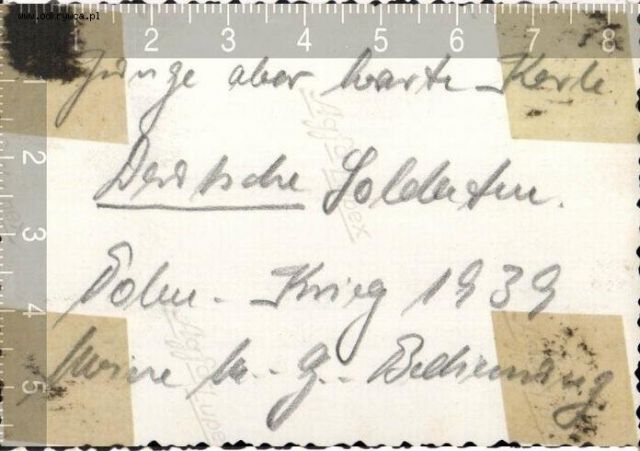 www.odkrywca.pl
1 2 3 4 5 6 7 8
Junge aber harte Kerle
2
Deutsche Soldaten.
3
Polen-Krieg 1939
4
Meine M.-G.-Bedienung
5
Agfa Lupex
Agfa Lupex